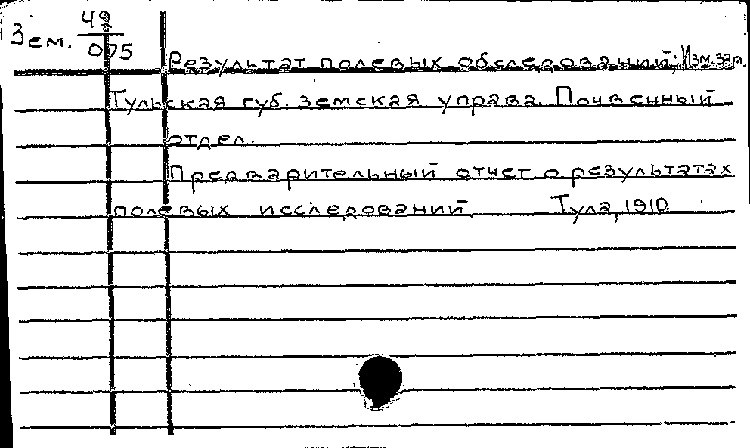 Зем. 49/075
Результат полевых обследований;
Тульская губ. земская управа. Почвенный
отдел.
Предварительный отчет о результатах
полевых исследований Тула, 1910